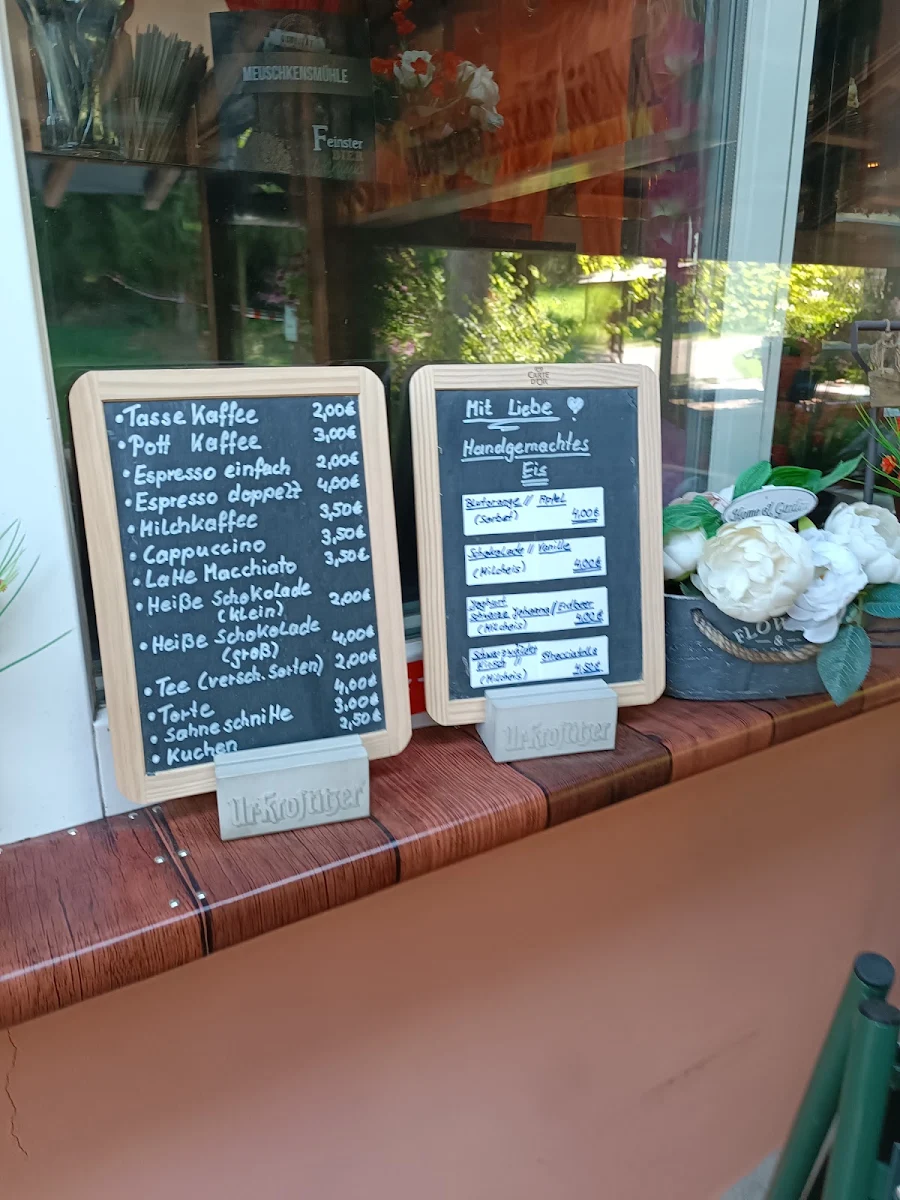 MEUSCHKENSMÜHLE
Feinster
BIER
•Tasse Kaffee 2,00€
•Pott Kaffee 3,00€
•Espresso einfach 2,00€
•Espresso doppelt 4,00€
•Milchkaffee 3,50€
•Cappuccino 3,50€
•Latte Macchiato 3,50€
•Heiße Schokolade
(klein) 2,00€
•Heiße Schokolade
(groß) 4,00€
•Tee (versch. Sorten) 2,00€
•Torte 4,00€
•Sahneschnitte 3,00€
•Kuchen 2,50€
Ur-Krostitzer
CARTE
D'OR
Mit Liebe
Handgemachtes
Eis
Blutorange // Apfel
(Sorbet) 4,00€
Schokolade // Vanille
(Milcheis) 4,00€
Joghurt
schwarze Johanna/Erdbeer
(Milcheis) 4,00€
Kirsch Stracciatella
(Milcheis) 4,50€
Ur-Krostitzer
Home & Garden
FLOW
&